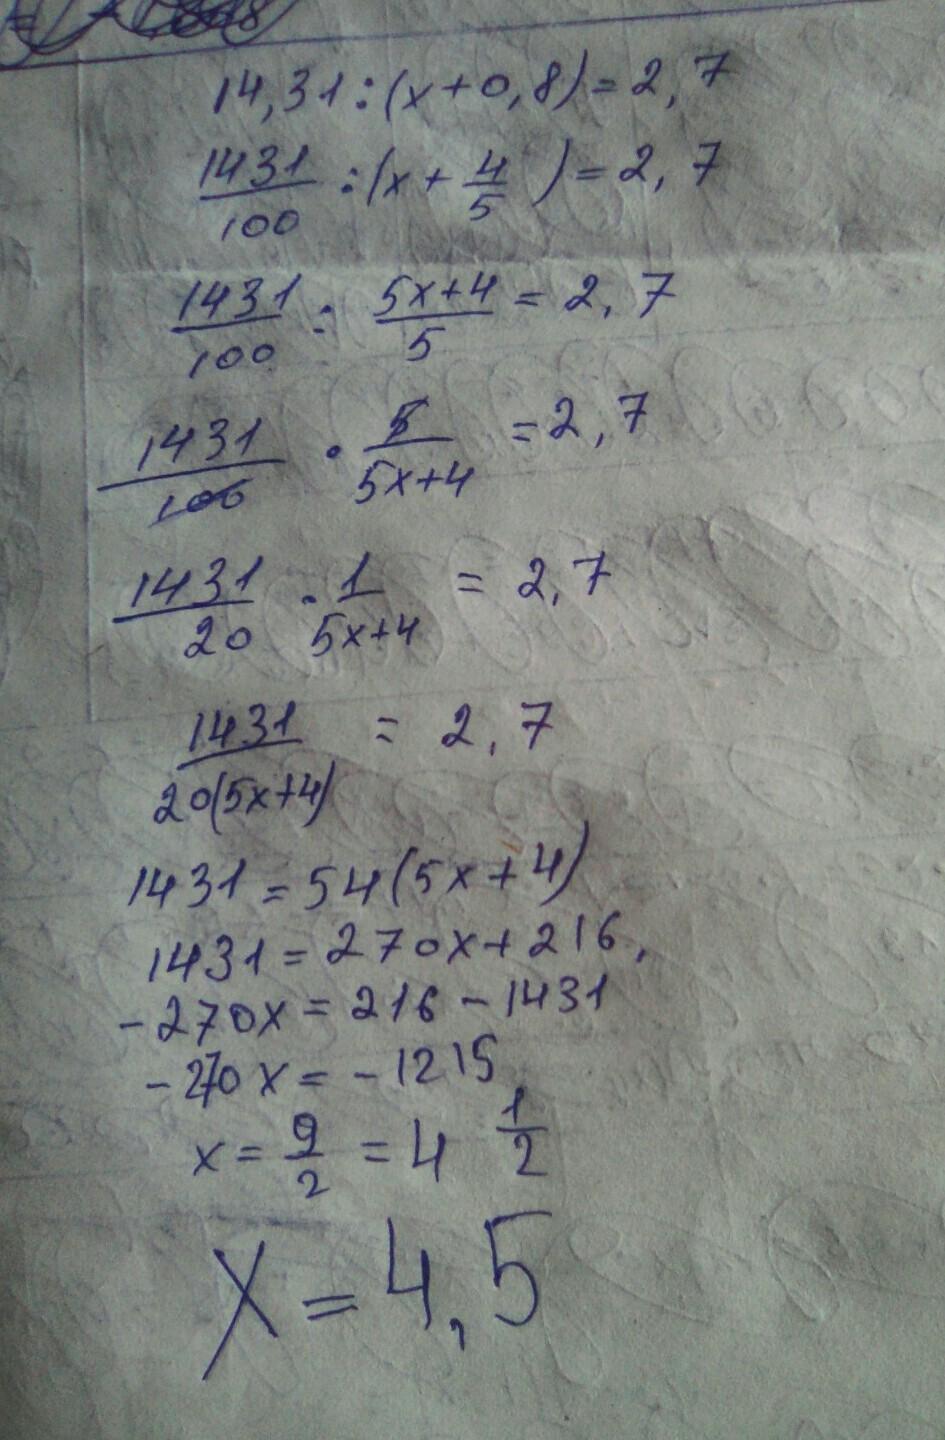 14,31:(x+0,8)=2,7
1431/100 :(x+ 4/5 )=2,7
1431/100 : 5x+4/5 = 2,7
1431/100 · 5/5x+4 =2,7
1431/20 · 1/5x+4 = 2,7
1431/20(5x+4) = 2,7
1431=54(5x+4)
1431=270x+216,
-270x=216-1431
-270x=-1215
x= 9/2 =4 1/2
X=4,5